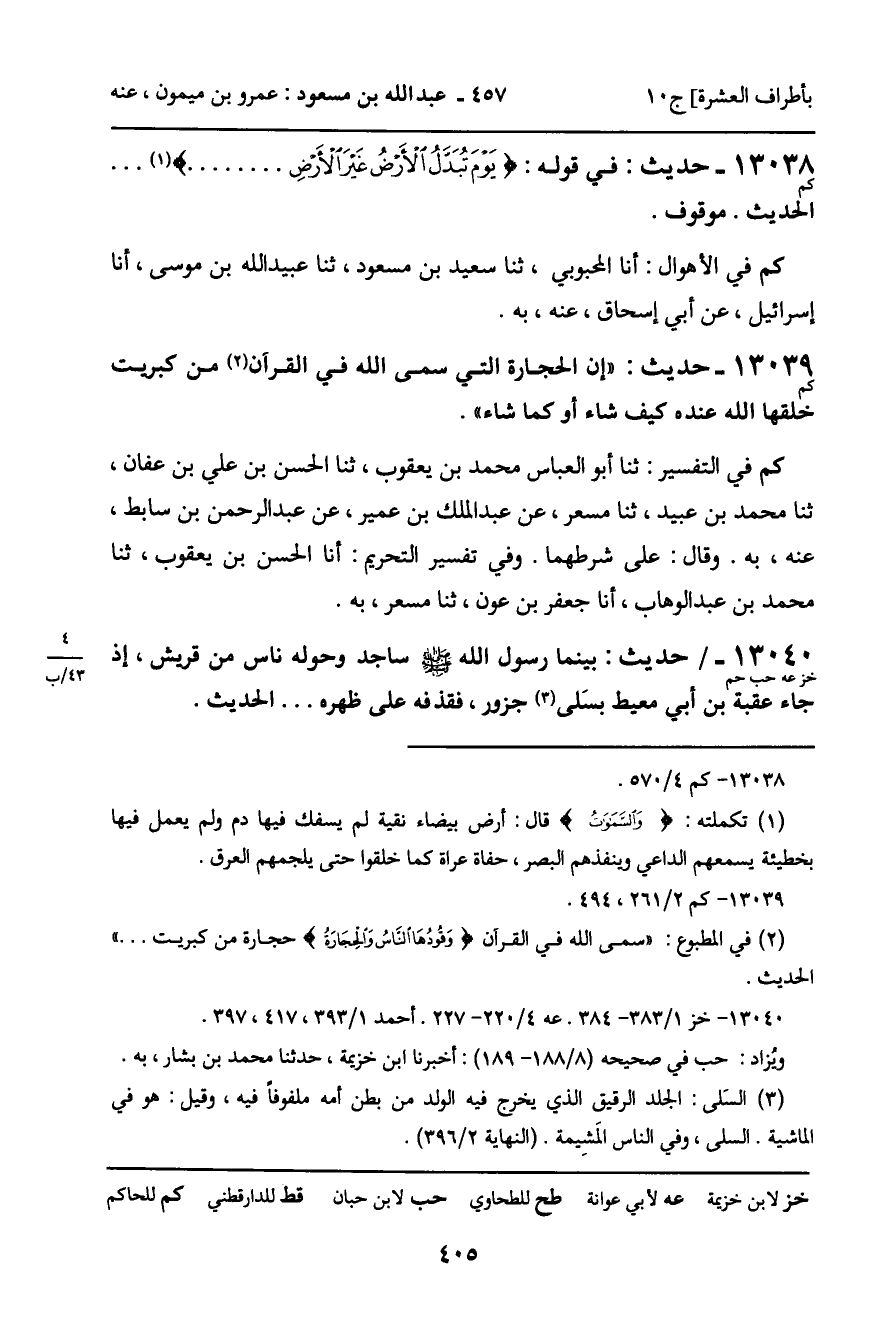 بأطراف العشرة] ج١٠ ٤٥٧ ـ عبدالله بن مسعود : عمرو بن ميمون ، عنه
١٣٠٣٨ ـ حديث : في قوله : ﴿ يَوْمَ تُبَدَّلُ ٱلْأَرْضُ غَيْرَ ٱلْأَرْضِ ........﴾(١) ...
كم
الحديث . موقوف .
كم في الأهوال : أنا المحبوبي ، ثنا سعيد بن مسعود ، ثنا عبيدالله بن موسى ، أنا
إسرائيل ، عن أبي إسحاق ، عنه ، به .
١٣٠٣٩ ـ حديث : «إن الحجارة التي سمى الله في القرآن(٢) من كبريت
كم
خلقها الله عنده كيف شاء أو كما شاء» .
كم في التفسير : ثنا أبو العباس محمد بن يعقوب ، ثنا الحسن بن علي بن عفان ،
ثنا محمد بن عبيد ، ثنا مسعر ، عن عبدالملك بن عمير ، عن عبدالرحمن بن سابط ،
عنه ، به . وقال : على شرطهما . وفي تفسير التحريم : أنا الحسن بن يعقوب ، ثنا
محمد بن عبدالوهاب ، أنا جعفر بن عون ، ثنا مسعر ، به .
١٣٠٤٠ ـ / حديث : بينما رسول الله ﷺ ساجد وحوله ناس من قريش ، إذ
٤
٤٣/ب
خز عه حب حم
جاء عقبة بن أبي معيط بسَلى(٣) جزور ، فقذفه على ظهره ... الحديث .
١٣٠٣٨- كم ٥٧٠/٤ .
(١) تكملته : ﴿ وَٱلسَّمَٰوَٰتُ ﴾ قال : أرض بيضاء نقية لم يسفك فيها دم ولم يعمل فيها
بخطيئة يسمعهم الداعي وينفذهم البصر ، حفاة عراة كما خلقوا حتى يلجمهم العرق .
١٣٠٣٩- كم ٢٦١/٢ ، ٤٩٤ .
(٢) في المطبوع : «سمى الله في القرآن ﴿ وَقُودُهَا ٱلنَّاسُ وَٱلْحِجَارَةُ ﴾ حجارة من كبريت ...»
الحديث .
١٣٠٤٠- خز ٣٨٣/١- ٣٨٤ . عه ٢٢٠/٤- ٢٢٧ . أحمد ٣٩٣/١ ، ٤١٧ ، ٣٩٧ .
ويُزاد : حب في صحيحه (١٨٨/٨- ١٨٩) : أخبرنا ابن خزيمة ، حدثنا محمد بن بشار ، به .
(٣) السَلى : الجلد الرقيق الذي يخرج فيه الولد من بطن أمه ملفوفاً فيه ، وقيل : هو في
الماشية . السلى ، وفي الناس المَشِيمة . (النهاية ٣٩٦/٢) .
خز لابن خزيمة عه لأبي عوانة طح للطحاوي حب لابن حبان قط للدارقطني كم للحاكم
٤٠٥